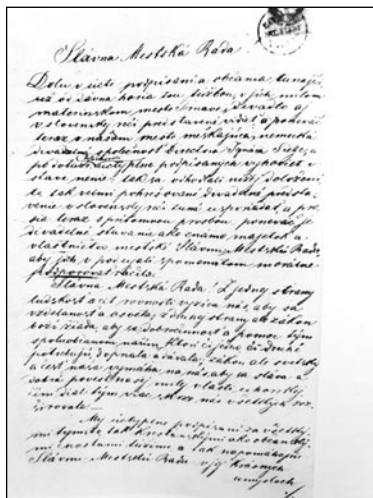 Slávna Mestská Rada.
Dolu v úcte podpísaní a občania tunajší,
už od dávna horia tou túžbou, v jich milom
materinskom meste Trnave, divadlo aj
v slovenskej reči predstavené vidieť a ponevač
teraz v našom meste meškajúca nemecká
divadelná spoločnosť Directora Ignáca
podpísaných vyhovieť v
stave neni tak sa odhodlali nižej doložení
ta tak velmi pohrešované divadelné predsta-
venie v slovenskej reči sami usporiadať, a pro-
sia teraz s prítomnou prosbou, ponevač je
divadelné stavanie ako známo majetok a
vlastníctvo mestské Slávnu Mestskú Radu,
aby jich v povzatí spomenutom morálne
podporovať ráčila.
Slávna Mestská Rada! Z jednej strany
ludskosť a cit rovnosti vyzíva nás, aby sa
vzdelanosť a osveta, z druhej strany ale zákon
boží žiada, aby sa dobročinnosť a pomoc tým
spoluobčanom našim, ktorí či jedno či druhé
potrebujú, dopriala a dávala; zákon ale svetský
a česť naša vymáha na nás, aby sa sláva a
dobrá povesť našej milej vlasti uhorskej
čím ďial tým viac skrz nás všetkých roz-
širovala.
My úctyplne podpísaní za všetký-
mi týmito tak kresťanskými ako občianský-
mi cnosťami túžime a tak napomáhajúc
Slávnu Mestskú Radu v jej krásnych
úmysloch